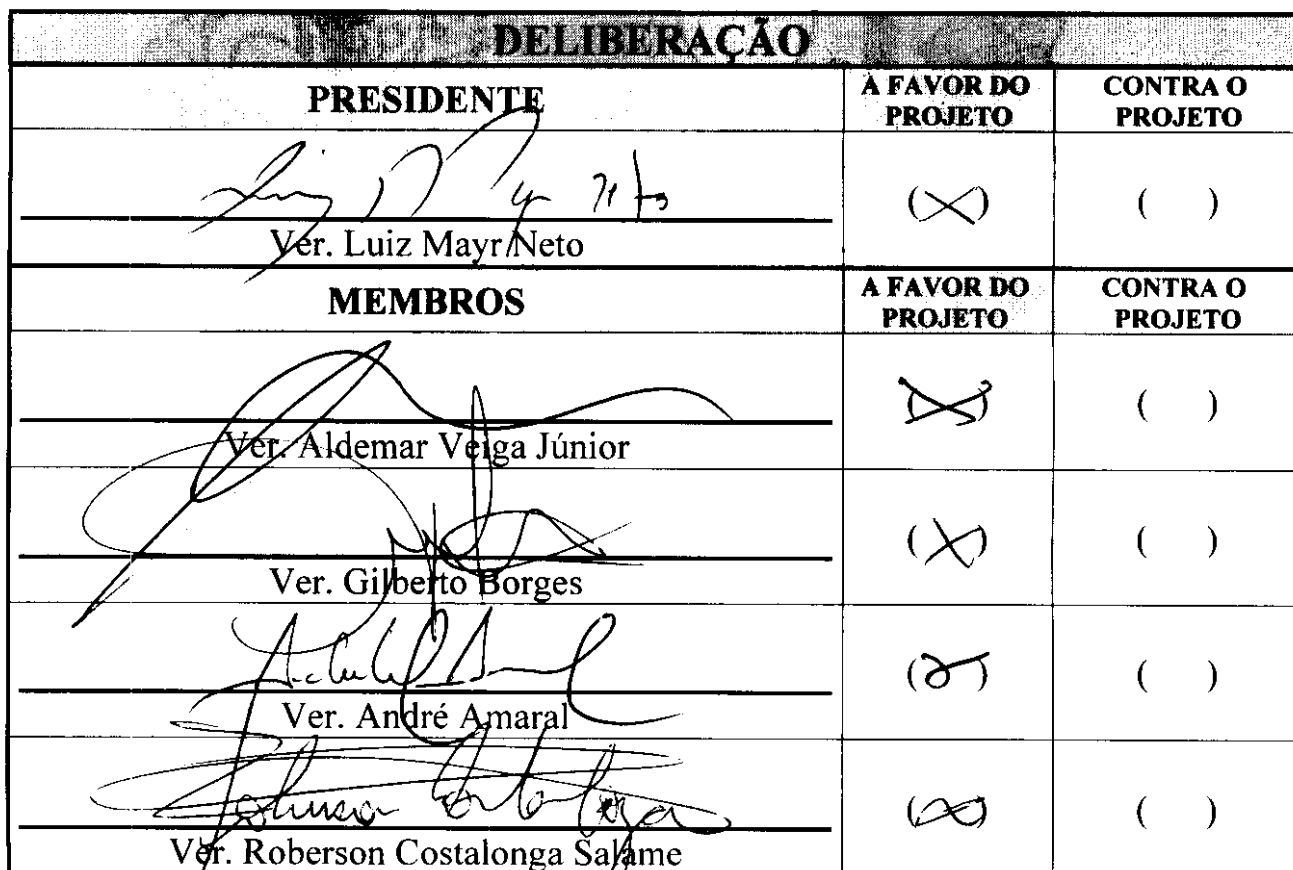 DELIBERAÇÃO
PRESIDENTE
A FAVOR DO PROJETO
CONTRA O PROJETO
Ver. Luiz Mayr Neto
(X)
( )
MEMBROS
A FAVOR DO PROJETO
CONTRA O PROJETO
Ver. Aldemar Veiga Júnior
(X)
( )
Ver. Gilberto Borges
(X)
( )
Ver. André Amaral
( )
Ver. Roberson Costalonga Salame
( )